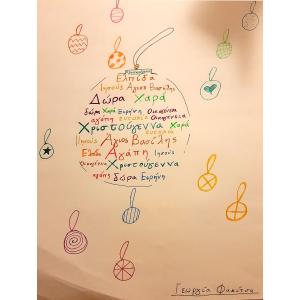 Ελπίδα
Ιησούς Άγιος Βασίλης
Δώρα Χαρά
δώρα Χαρά Ειρήνη Οικογένεια
αγάπη ευτυχία Οικογένεια
Χριστούγεννα Χαρά
Ιησούς Άγιος Βασίλης
Ελπίδα Αγάπη Ιησούς
Οικογένεια Χριστούγεννα
αγάπη δώρα Ειρήνη
Γεωργία Φακίτσα